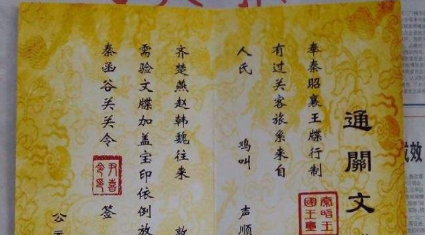 通關文
奉秦昭襄王牒行制
有过关客旅系来自
人民 鸡叫 声顺
齐楚燕赵韩魏往来
需验文牒加盖宝印依倒放
秦函谷关关令
尹喜 签
公元